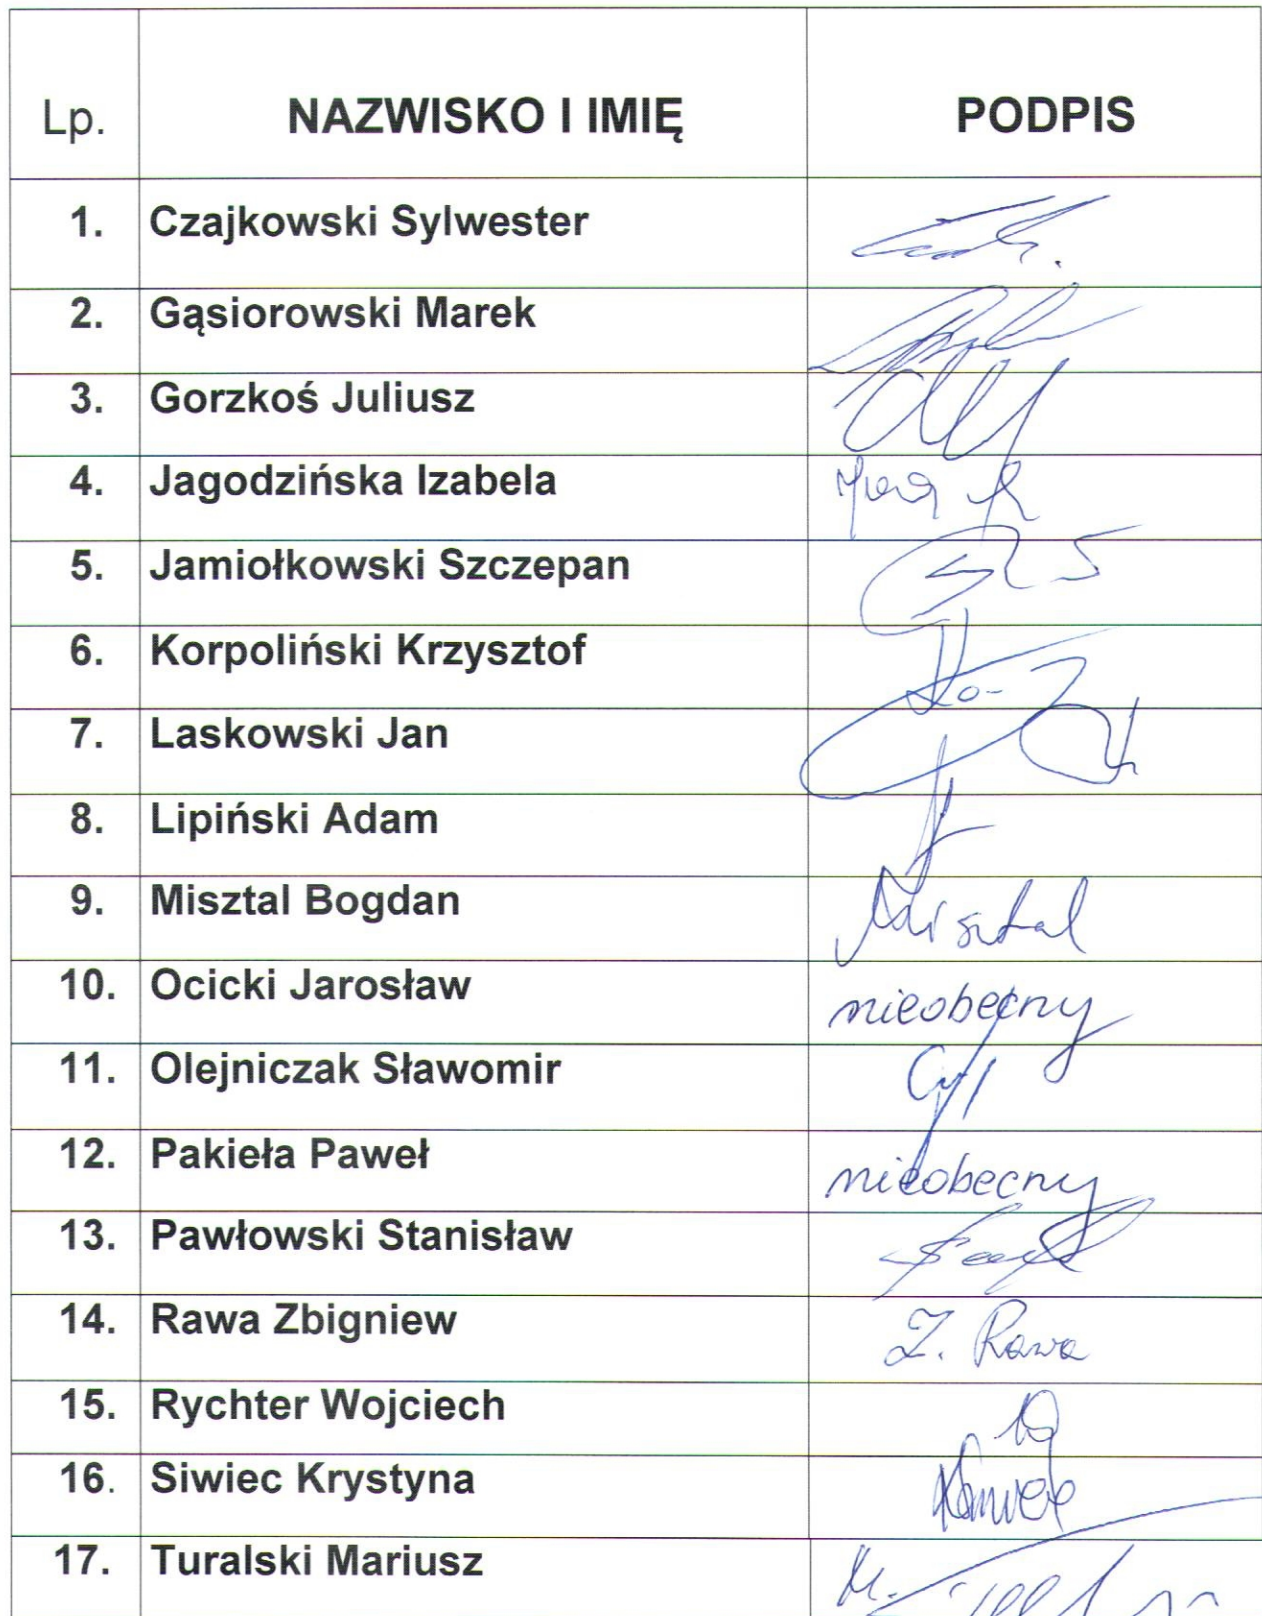 Lp. NAZWISKO I IMIĘ PODPIS
1. Czajkowski Sylwester
2. Gąsiorowski Marek
3. Gorzkoś Juliusz
4. Jagodzińska Izabela
5. Jamiołkowski Szczepan
6. Korpoliński Krzysztof
7. Laskowski Jan
8. Lipiński Adam
9. Misztal Bogdan Misztal
10. Ocicki Jarosław nieobecny
11. Olejniczak Sławomir
12. Pakieła Paweł nieobecny
13. Pawłowski Stanisław
14. Rawa Zbigniew Z. Rawa
15. Rychter Wojciech
16. Siwiec Krystyna
17. Turalski Mariusz